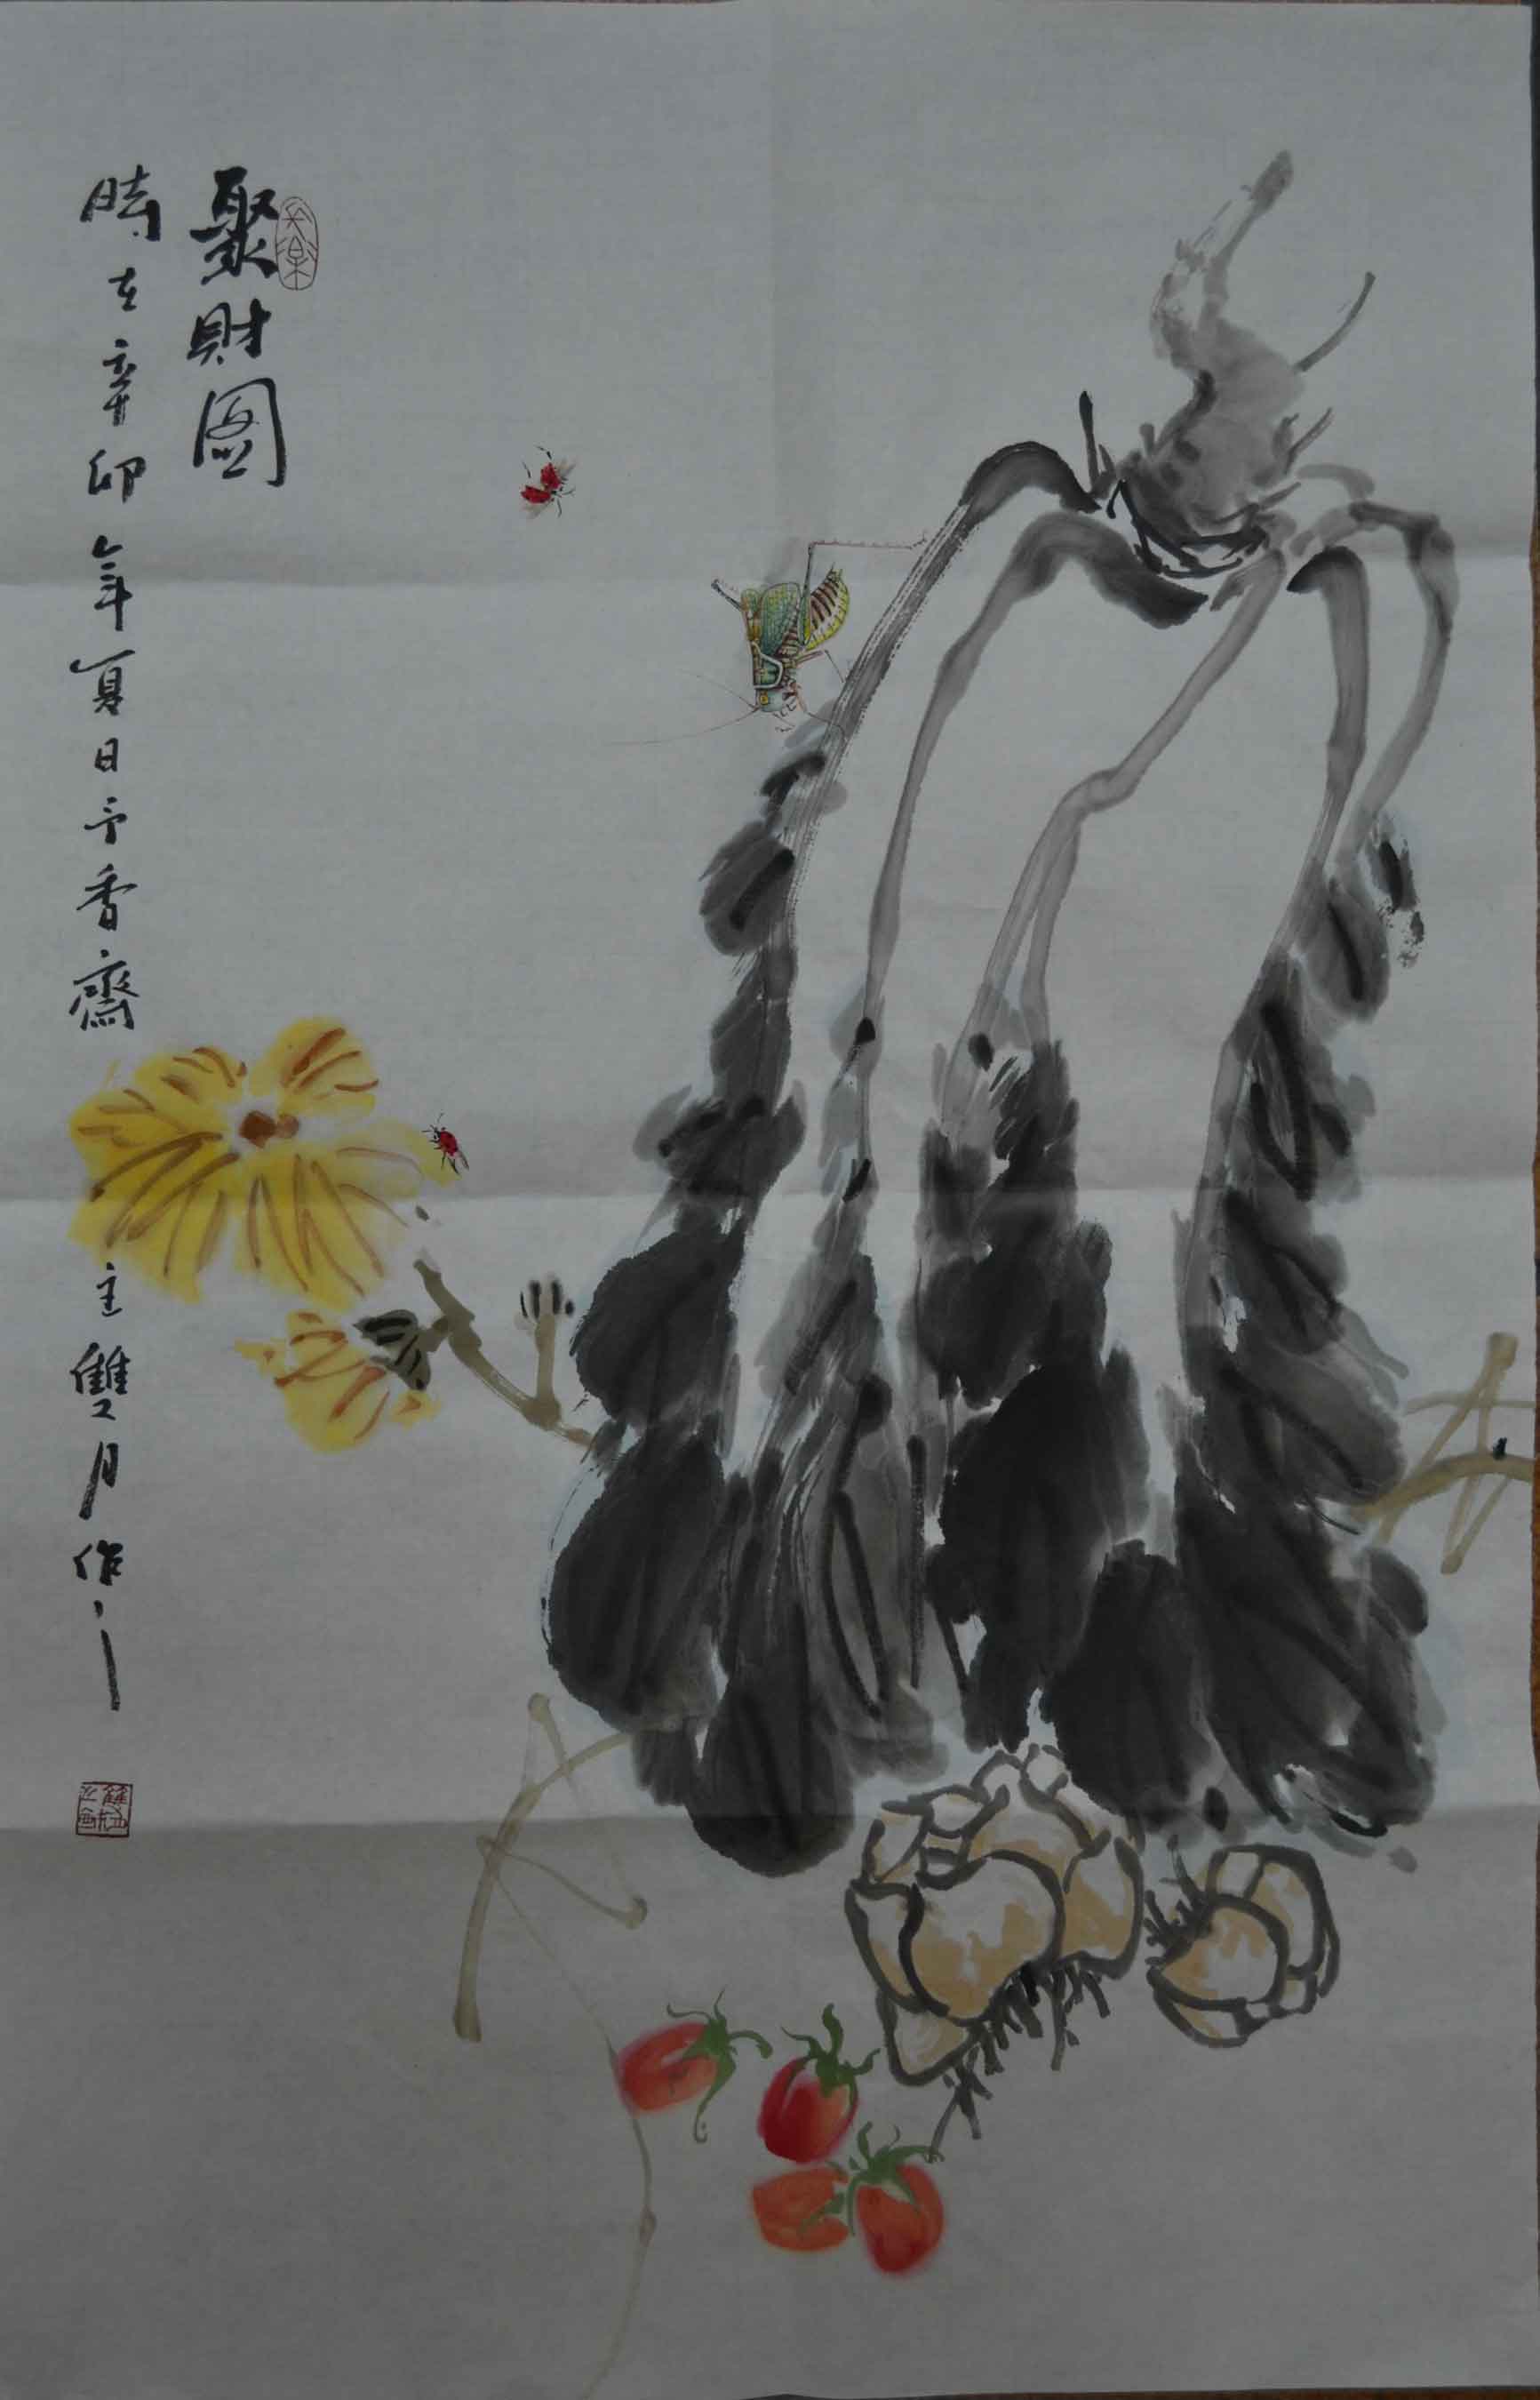 聚財圖
時在辛卯年夏日于香齋
主雙月作